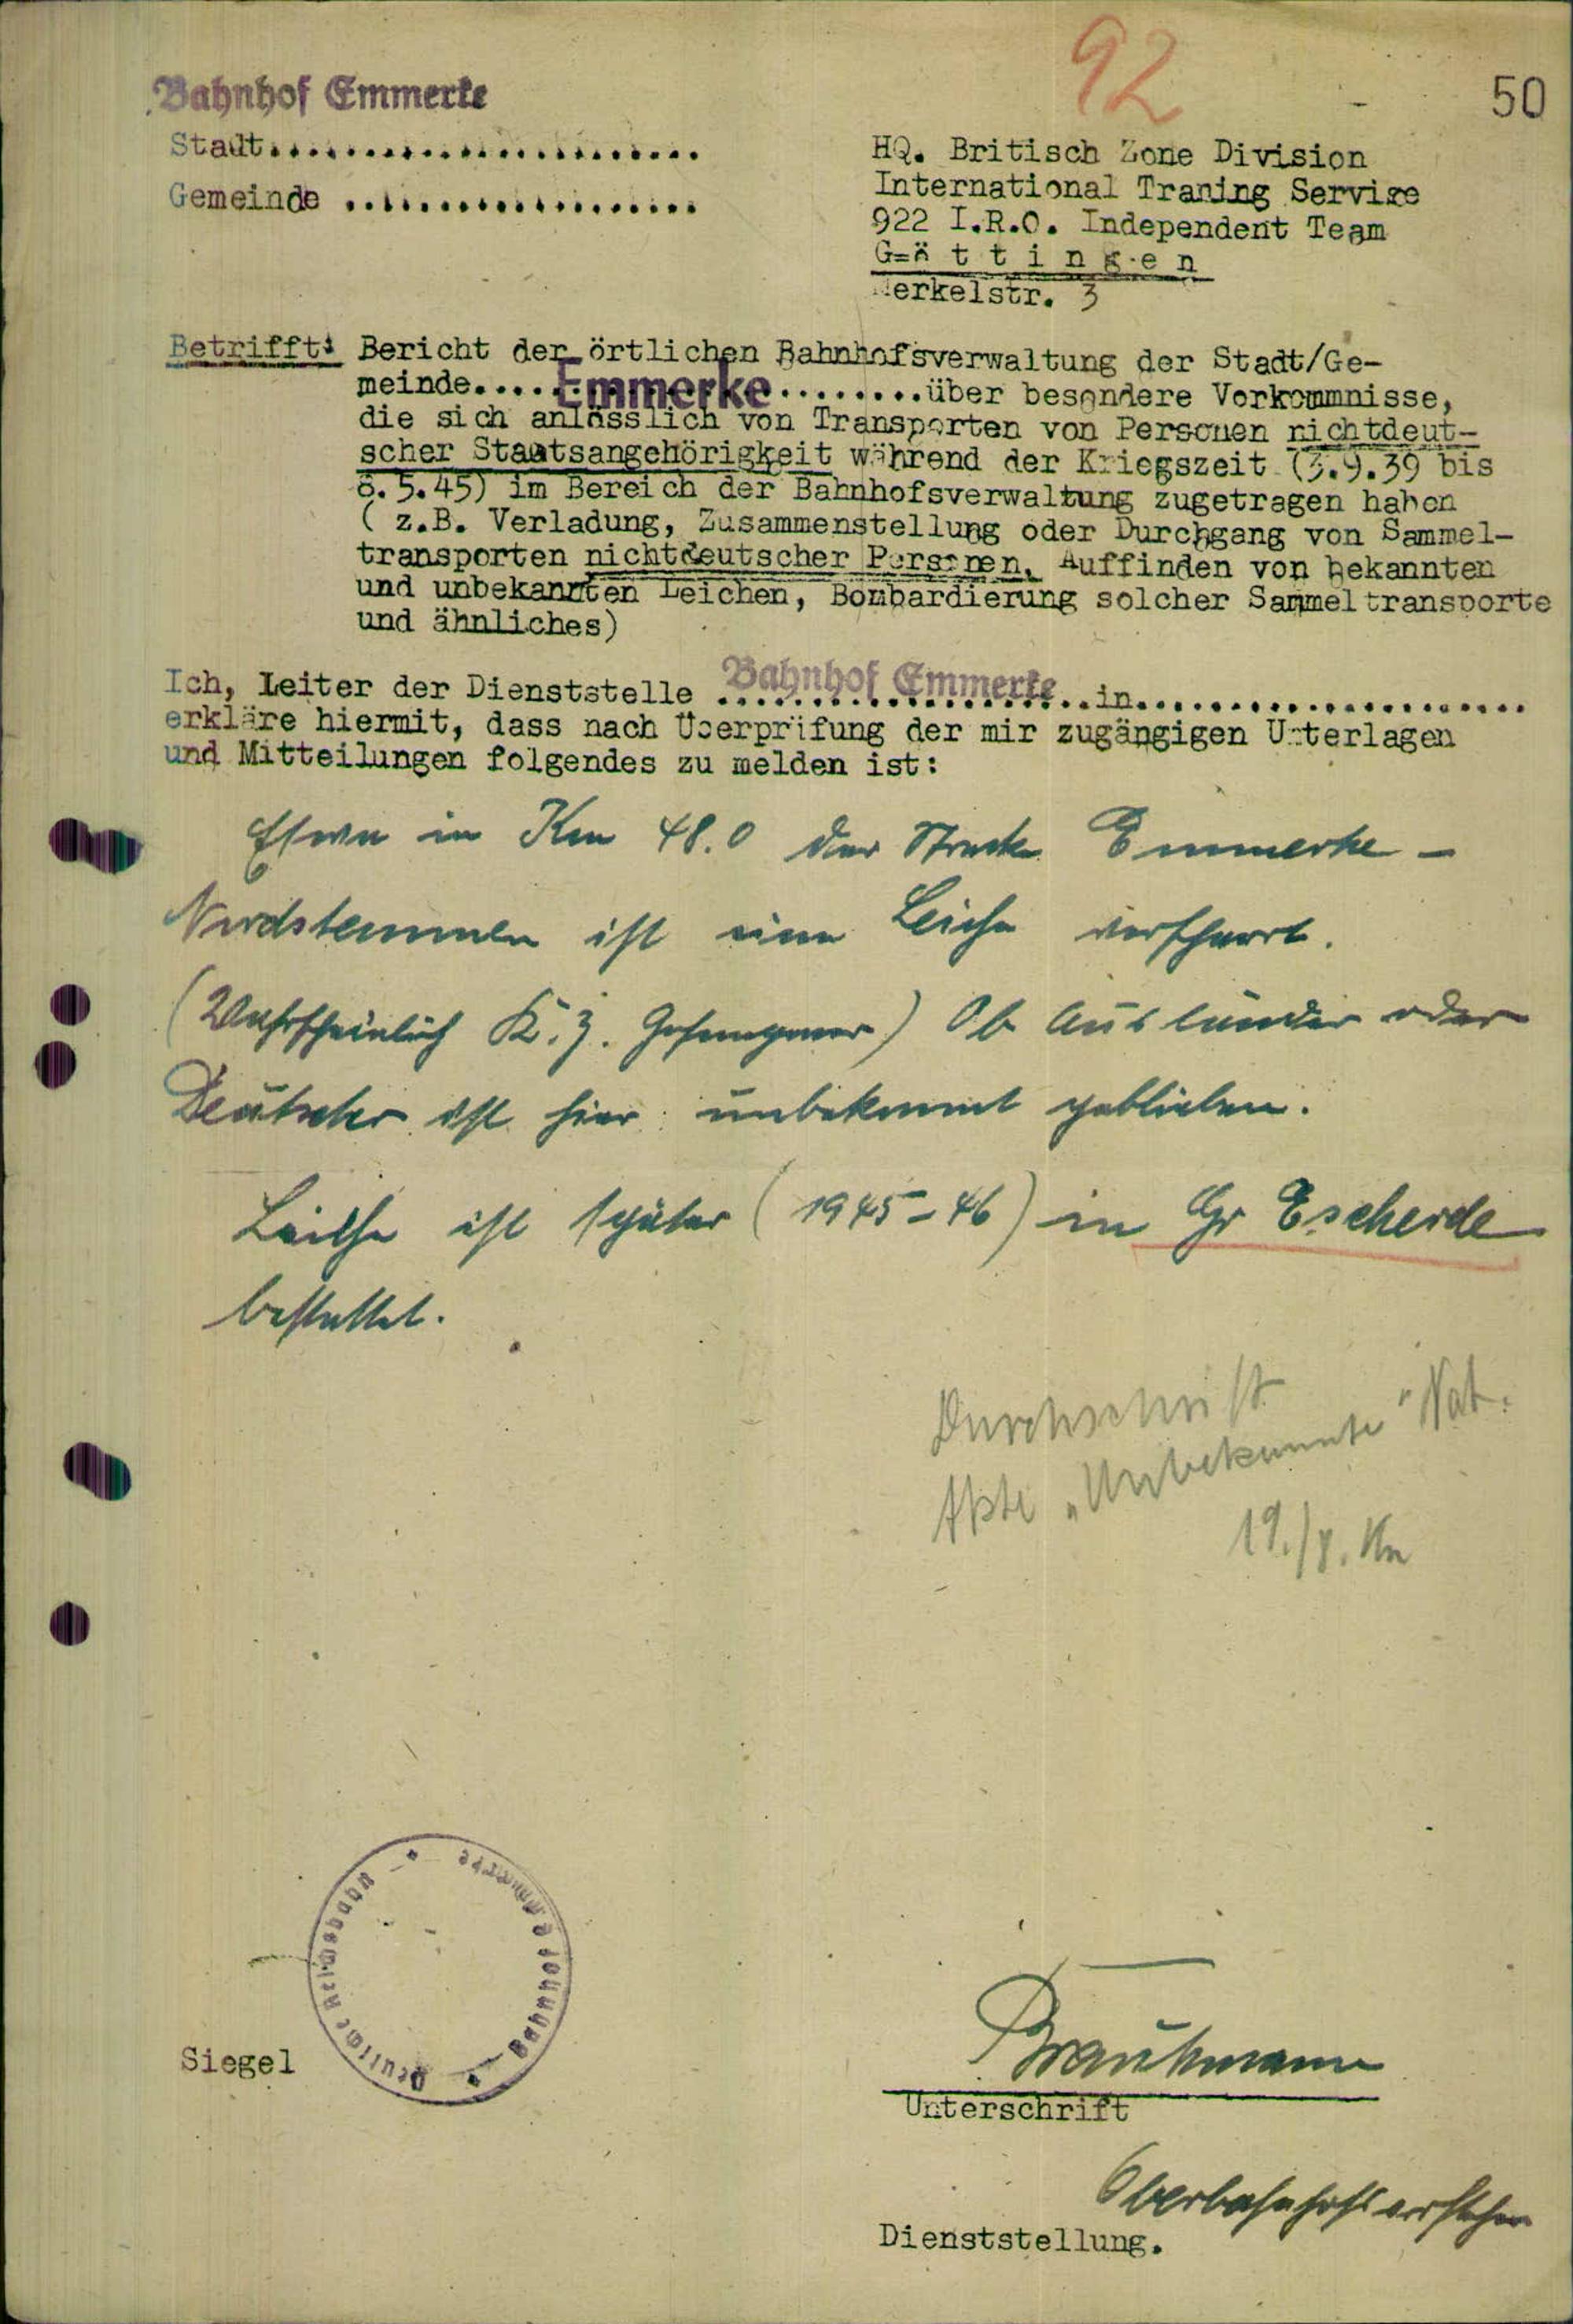 92
50
Bahnhof Emmerke
Stadt.........................
Gemeinde .....................
HQ. Britisch Zone Division
International Traning Servixe
922 I.R.O. Independent Team
G=ö t t i n g e n
Merkelstr. 3
Betrifft: Bericht der örtlichen Bahnhofsverwaltung der Stadt/Ge-
meinde.....Emmerke.........über besondere Vorkommnisse,
die sich anlässlich von Transporten von Personen nichtdeut-
scher Staatsangehörigkeit während der Kriegszeit (3.9.39 bis
8.5.45) im Bereich der Bahnhofsverwaltung zugetragen haben
( z.B. Verladung, Zusammenstellung oder Durchgang von Sammel-
transporten nichtdeutscher Personen, Auffinden von bekannten
und unbekannten Leichen, Bombardierung solcher Sammeltransporte
und ähnliches)
Ich, Leiter der Dienststelle Bahnhof Emmerke..in.......................
erkläre hiermit, dass nach Überprüfung der mir zugängigen Unterlagen
und Mitteilungen folgendes zu melden ist:
Etwa in Km 48.0 der Strecke Emmerke –
Nordstemmen ist eine Leiche verscharrt.
(Wahrscheinlich K.Z. Gefangener) Ob Ausländer oder
Deutscher ist hier unbekannt geblieben.
Leiche ist später (1945–46) in Gr Escherde
bestattet.
Durchschrift
Akte "Unbekannte" Nat.
19./8. Kn
Deutsche Reichsbahn
Bahnhof Emmerke
Siegel
Braukmann
Unterschrift
Oberbahnhofsvorsteher
Dienststellung.